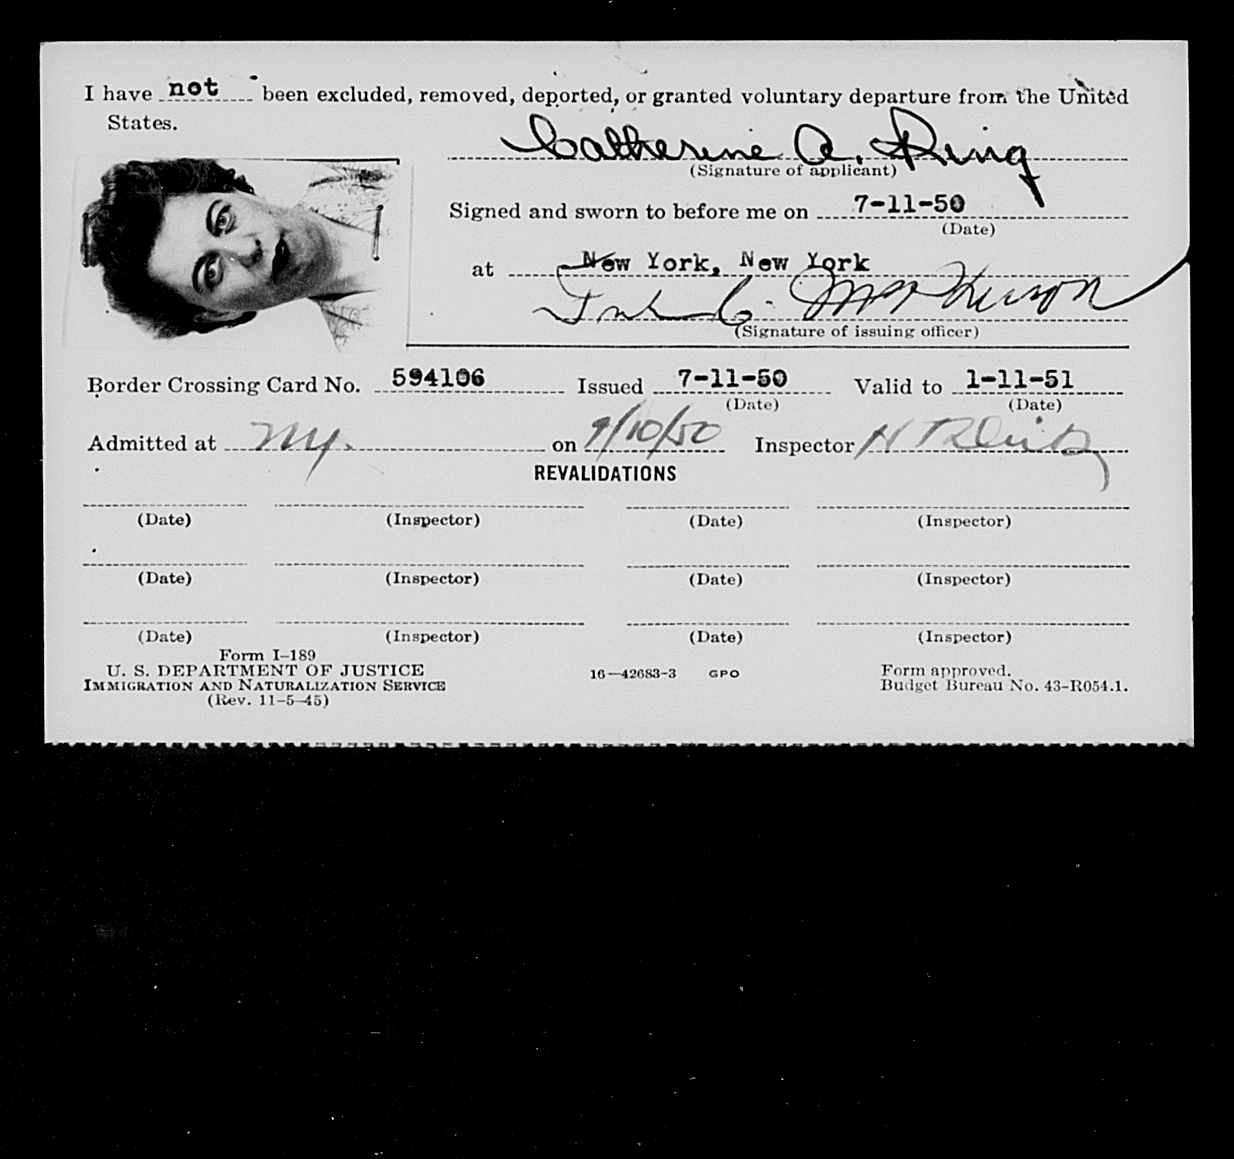 I have not been excluded, removed, deported, or granted voluntary departure from the United
States.
Catherine A. Ring
(Signature of applicant)
Signed and sworn to before me on 7-11-50
(Date)
at New York, New York
(Signature of issuing officer)
Border Crossing Card No. 594106 Issued 7-11-50 Valid to 1-11-51
(Date) (Date)
Admitted at NY. on 9/10/50 Inspector H
REVALIDATIONS
(Date) (Inspector) (Date) (Inspector)
(Date) (Inspector) (Date) (Inspector)
(Date) (Inspector) (Date) (Inspector)
Form I-189
U. S. DEPARTMENT OF JUSTICE
IMMIGRATION AND NATURALIZATION SERVICE
(Rev. 11-5-45)
16—42683-3 GPO
Form approved.
Budget Bureau No. 43-R054.1.